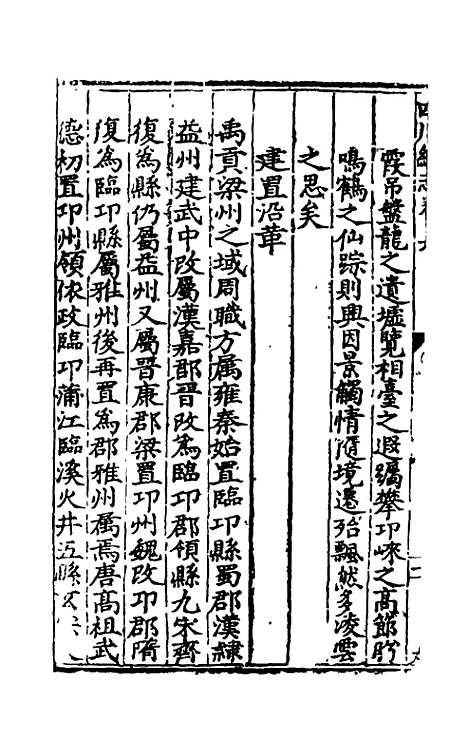 四川總志卷
霞吊盤龍之遺墟覽相臺之遐矚攀邛崍之高節盼
鳴鶴之仙踪則興因景觸情隨境遷殆飄然多凌雲
之思矣
建置沿革
禹貢梁州之域周職方属雍秦始置臨邛縣蜀郡漢隷
益州建武中改屬漢嘉郡晉改爲臨邛郡領縣九宋齊
復爲縣仍屬益州又屬晉康郡梁置邛州魏改邛郡隋
復爲臨邛縣屬雅州後再置爲郡雅州屬焉唐髙祖武
德初置邛州領依政臨邛蒲江臨溪火井五縣